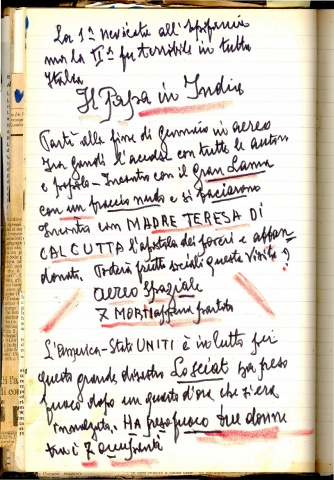 La 1ª nevicata all'Epifania
ma la IIª fu terribile in tutta
Italia
Il Papa in India
Partì alla fine di Gennaio in aereo
Ira Gandi l'accolse con tutte le autori
e popolo - Incontro con il Gran Lama
con un braccio nudo e si baciarono
Incontro con MADRE TERESA DI
CALCUTTA l'apostola dei poveri e abban
donati. Porterà frutti sociali questa visita?
aereo spaziale
7 MORTI appena partito
L'America - Stati UNITI è in lutto per
questo grande disastro Lo sciat ha preso
fuoco dopo un quarto d'ora che si era
innalzato. HA preso fuoco due donne
tra i 7 occupanti